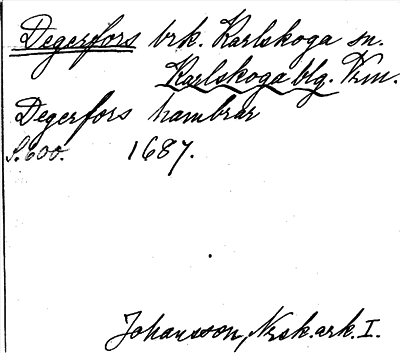 Degerfors brk. Karlskoga sn.
Karlskoga blg. Vrm.
Degerfors hambrar
S. 600. 1687.
Johansson, Nrsk. ark. I.